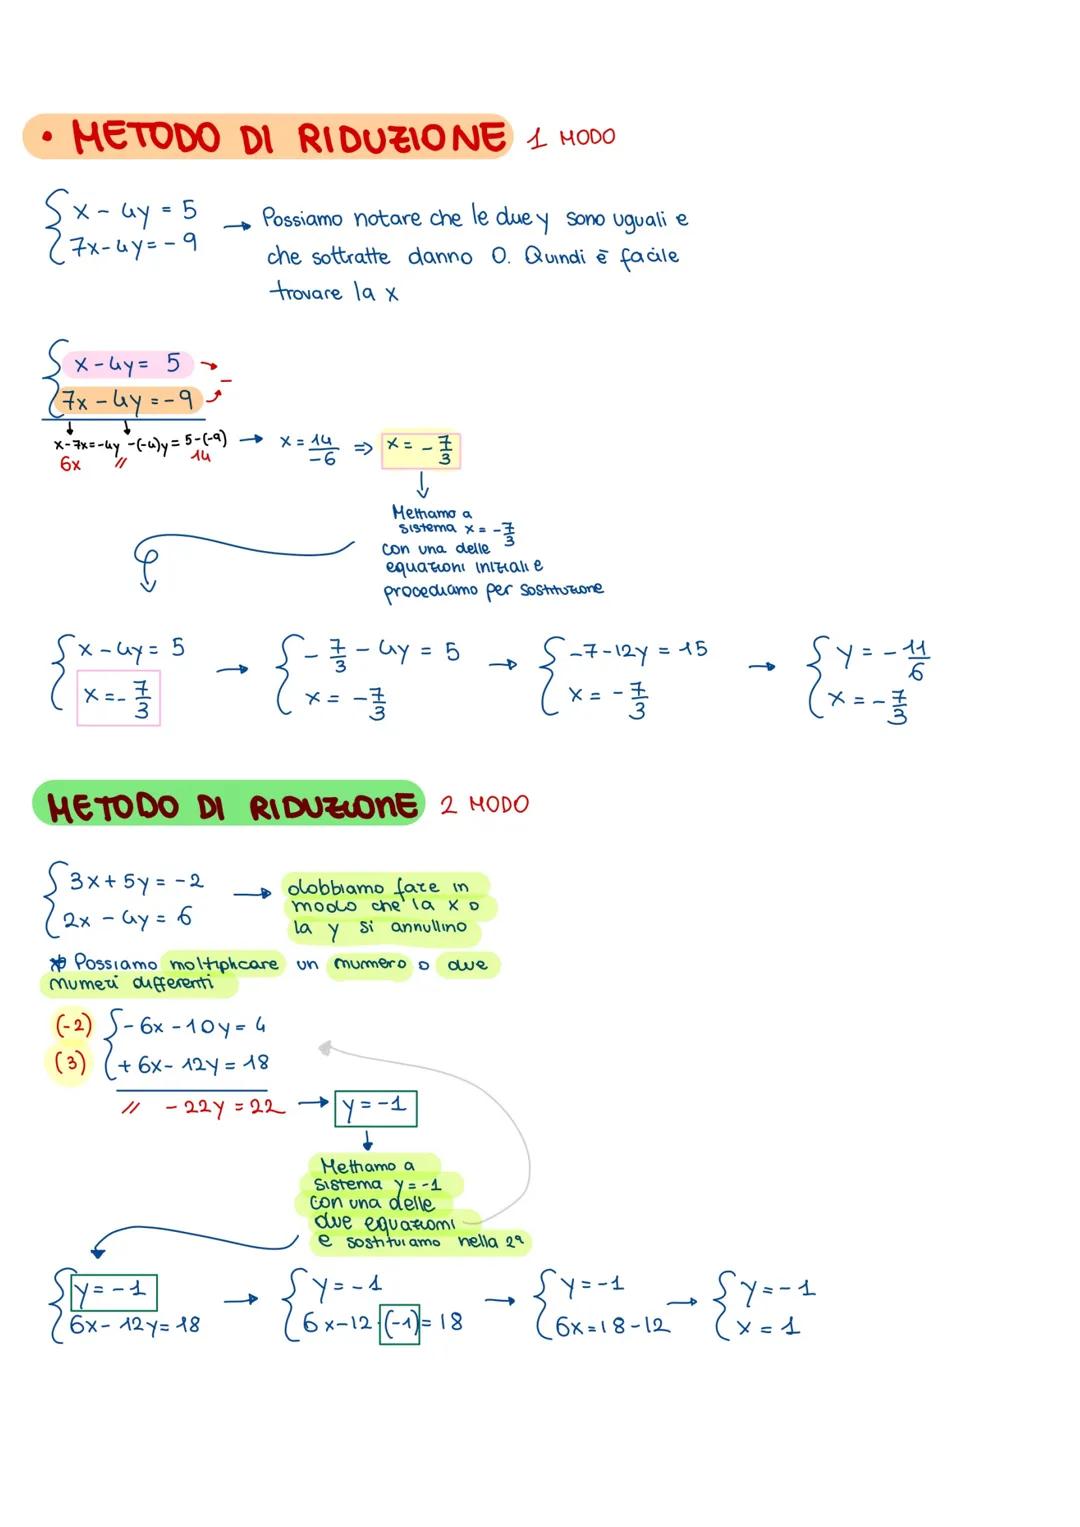 • METODO DI RIDUZIONE 1 MODO
x - 4y = 5
7x - 4y = - 9
→ Possiamo notare che le due y sono uguali e
che sottratte danno 0. Quindi è facile
trovare la x
x - 4y = 5
7x - 4y = - 9
-
x-7x=-4y -(-4)y = 5-(-9) → x = 14/-6 ⇒ x = - 7/3
6x // 14
Mettiamo a
sistema x = - 7/3
con una delle
equazioni iniziali e
procediamo per sostituzione
{ x - 4y = 5 → { - 7/3 - 4y = 5 → { -7-12y = 15 → { y = - 11/6
{ x = - 7/3 { x = - 7/3 { x = - 7/3 { x = - 7/3
METODO DI RIDUZIONE 2 MODO
3x + 5y = - 2
2x - 4y = 6
→ dobbiamo fare in
modo che la x o
la y si annullino
* Possiamo moltiplicare un numero o due
numeri differenti
(-2) { - 6x - 10y = 4
(3) { + 6x - 12y = 18
// - 22y = 22 → y = -1
Mettiamo a
sistema y = -1
con una delle
due equazioni
e sostituiamo nella 2ª
{ y = -1 → { y = -1 → { y = -1 → { y = -1
{ 6x - 12y = 18 { 6x-12·(-1) = 18 { 6x = 18-12 { x = 1